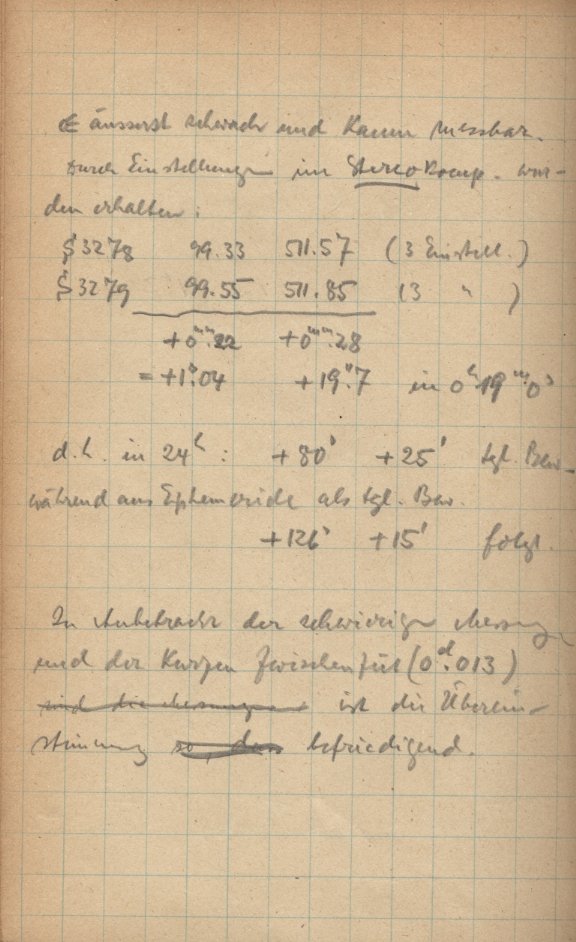 äusserst schwach und kaum messbar.
Durch Einstellungen im Stereokomp. wur-
den erhalten:
S 3278 99.33 511.57 (3 Einstell.)
S 3279 99.55 511.85 (3 " )
+0ᵐᵐ.22 +0ᵐᵐ.28
= +1ˢ.04 +19".7 in 0ʰ19ᵐ0ˢ
d.h. in 24ʰ: +80ˢ +25' tgl. Bew.
während aus Ephemeride als tgl. Bew.
+126ˢ +15' folgt.
In Anbetracht der schwierigen Messung
und der kurzen Zwischenzeit (0ᵈ.013)
sind die Messungen ist die Überein-
stimmung so, dass befriedigend.